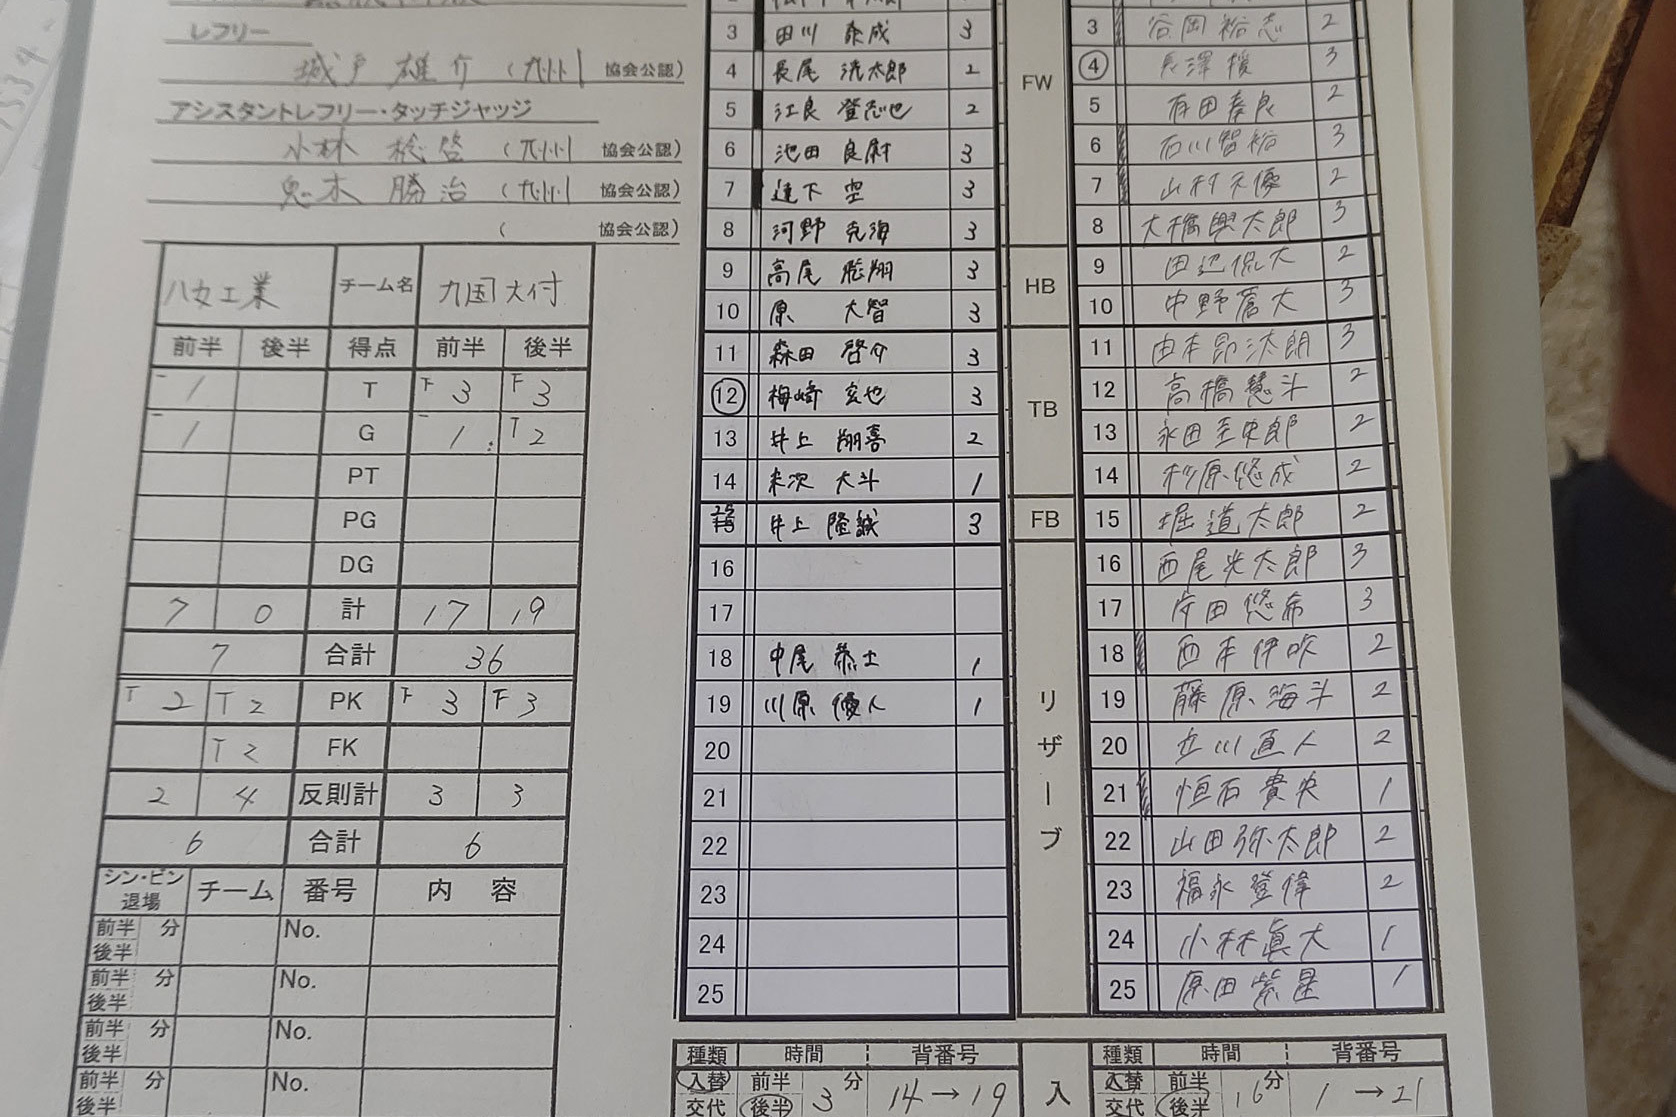 レフリー
城戸 雄介 (九州 協会公認)
アシスタントレフリー・タッチジャッジ
小林 総啓 (九州 協会公認)
鬼木 勝治 (九州 協会公認)
( 協会公認)
八女工業 チーム名 九国大付
前半 後半 得点 前半 後半
1 T 3 3
1 G 1 2
PT
PG
DG
7 0 計 17 19
7 合計 36
T 2 T 2 PK F 3 F 3
T 2 FK
2 4 反則計 3 3
6 合計 6
シン・ビン 退場 チーム 番号 内容
前半 後半 分 No.
前半 後半 分 No.
前半 後半 分 No.
前半 後半 分 No.
3 田川 泰成 3
4 長尾 洸太郎 2
5 江良 登志也 2
6 池田 良尉 3
7 達下 空 3
8 河野 克海 3
9 高尾 龍翔 3
10 原 大智 3
11 森田 啓介 3
12 梅崎 玄也 3
13 井上 翔喜 2
14 末次 大斗 1
25 井上 隆誠 3
16
17
18 中尾 恭士 1
19 川原 優人 1
20
21
22
23
24
25
FW
HB
TB
FB
リザーブ
3 谷岡裕志 2
4 長澤 3
5 有田泰良 2
6 石川智裕 3
7 山村天優 2
8 大橋興太郎 3
9 田辺侃大 2
10 中野蒼大 3
11 由本昂汰朗 3
12 高橋慧斗 2
13 永田圭史郎 2
14 杉原悠成 2
15 堀道太郎 2
16 西尾光太郎 3
17 片田悠希 3
18 西本伊吹 2
19 藤原海斗 2
20 立川直人 2
21 恒石貴央 1
22 山田弥太郎 2
23 福永登偉 2
24 小林眞大 1
25 原田紫星 1
種類 時間 背番号
入替 交代 前半 後半 3分 14→19
入
種類 時間 背番号
入替 交代 前半 後半 16分 1→21